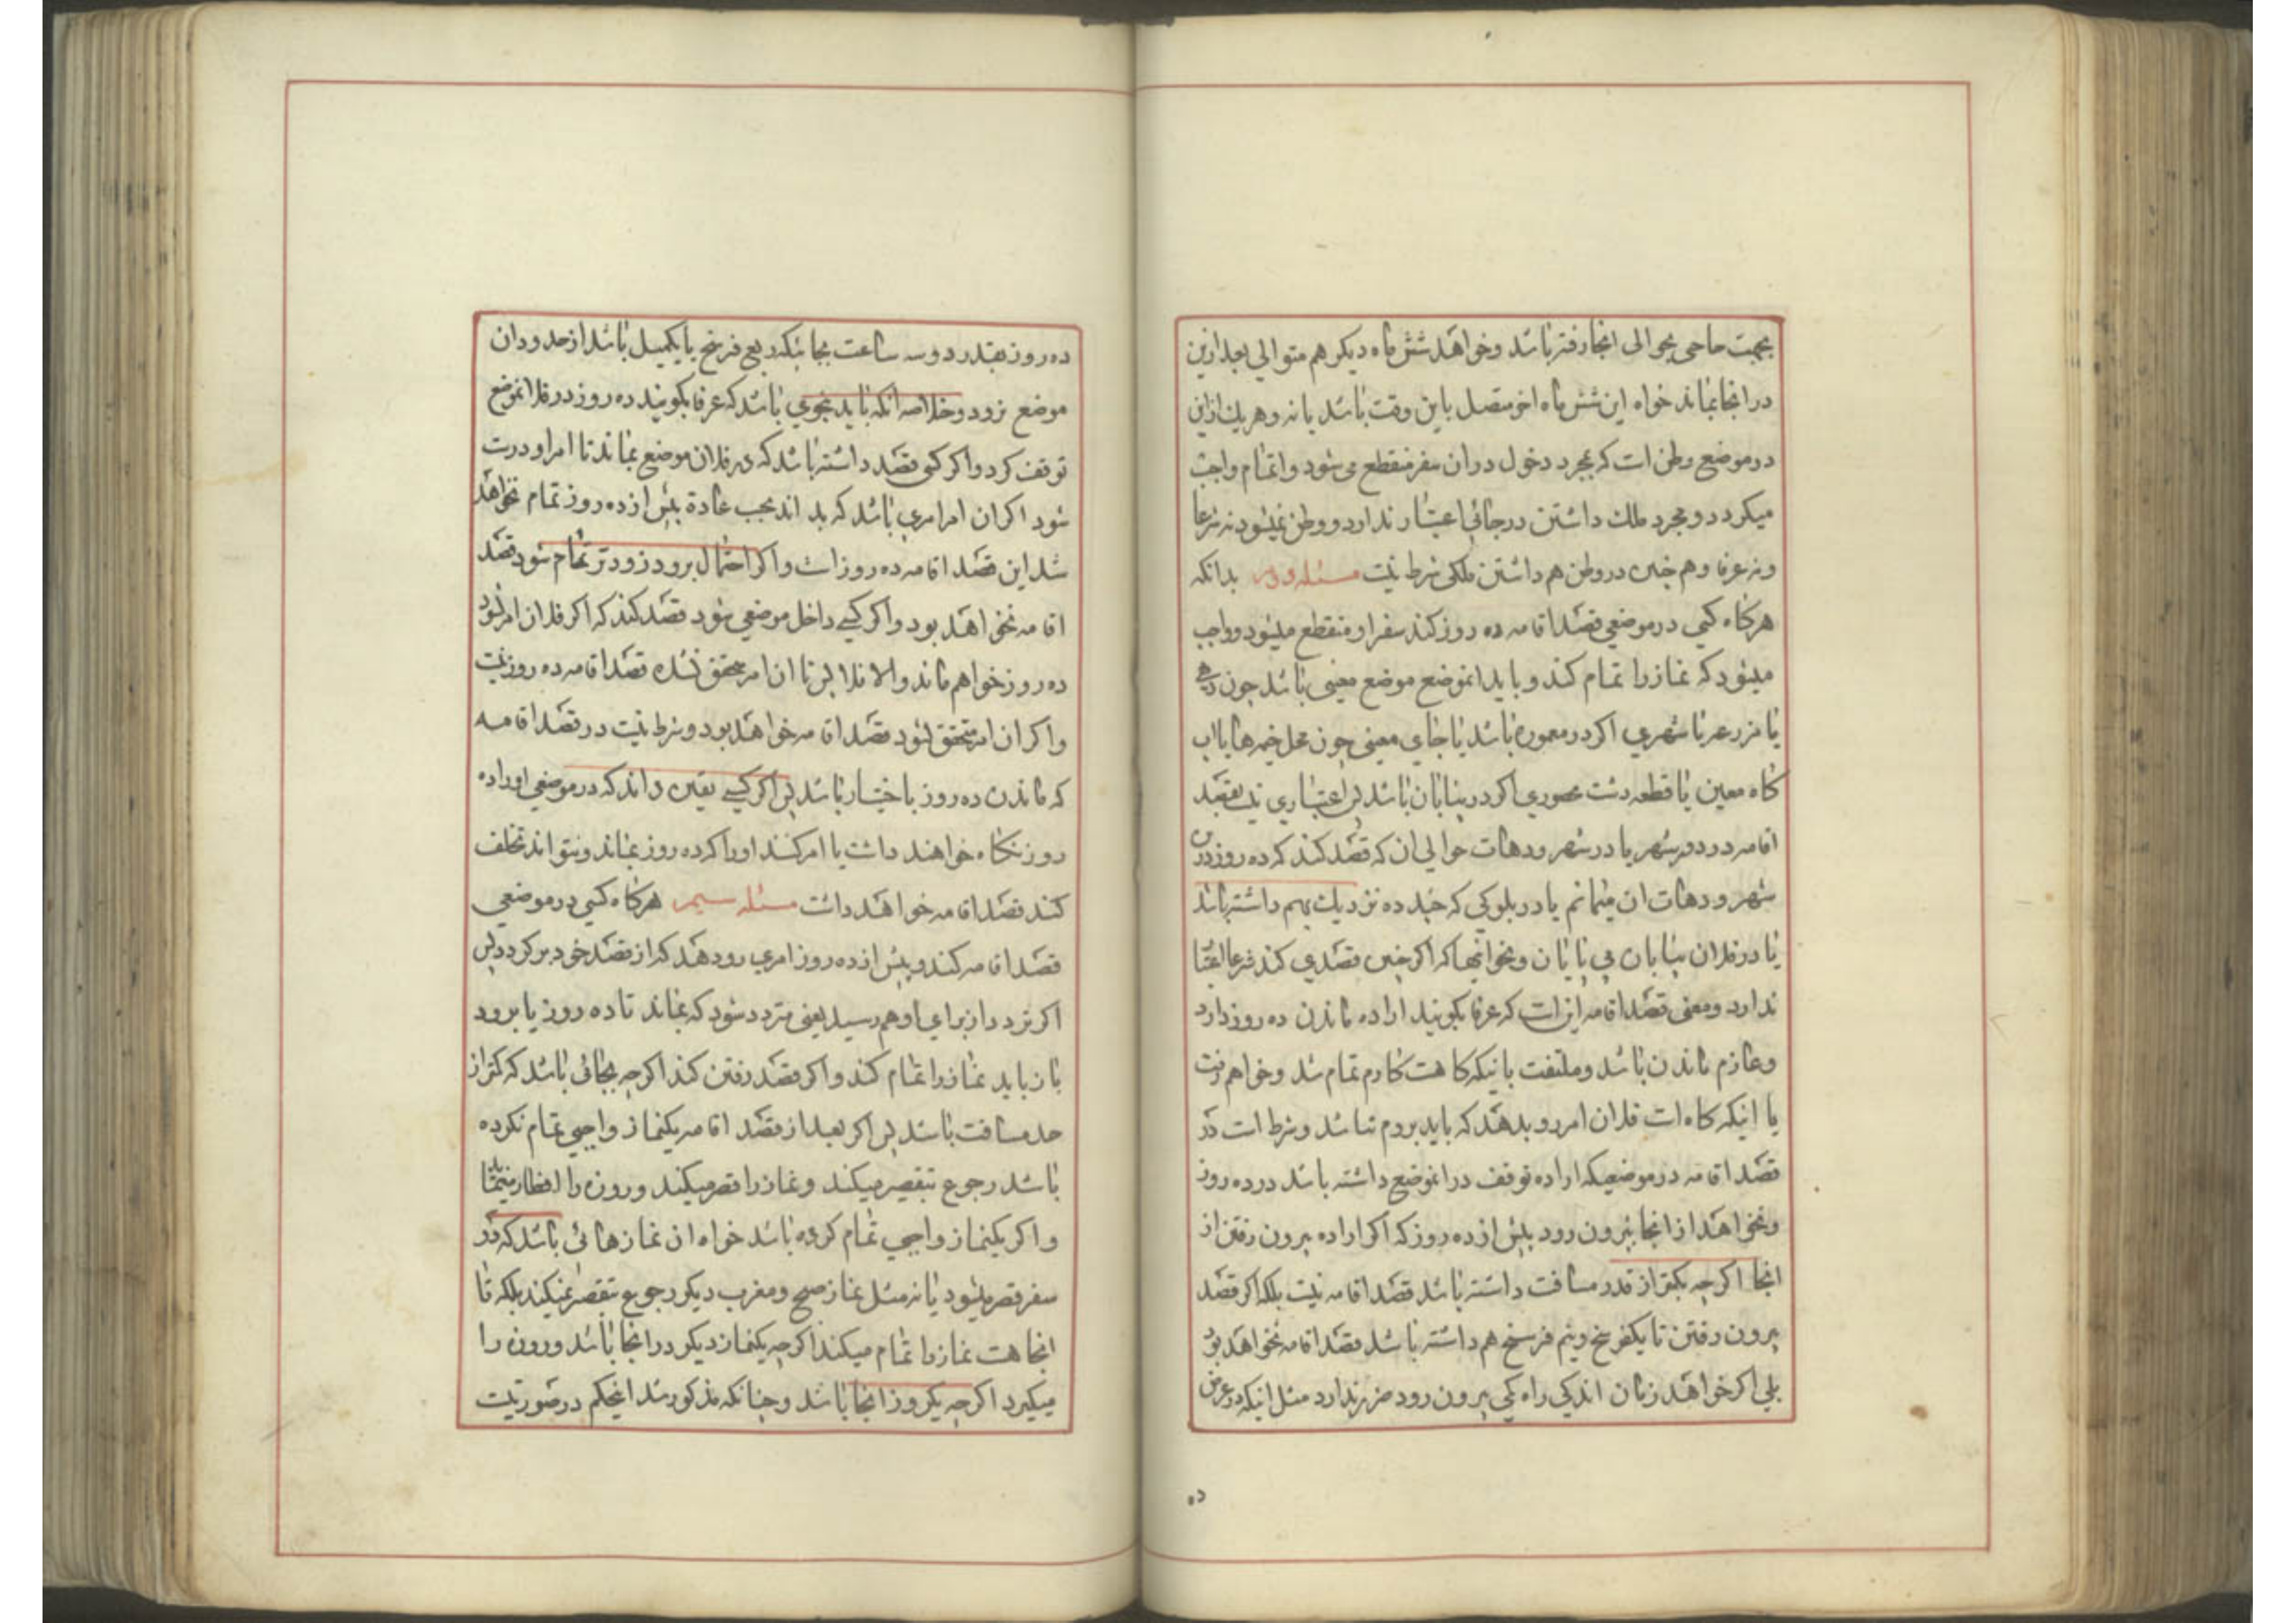 بجهت حاجی بحوالی انجا رفته باشد و خواهد شش ماه دیکر هم متوالی بعد ازین
در انجا بماند خواه این شش ماه اخر متصل باین وقت باشد یا نه و هر یك ازین
در موضع وطن است که بمجرد دخول در ان سفر منقطع می شود و اتمام واجب
میکردد و مجرد ملك داشتن در جائی اعتبار ندارد و وطن نمیشود نه شرعا
و نه عرفا و هم چنین در وطن هم داشتن ملکی شرط نیست مسئله دویم بدانکه
هرکاه کسی در موضعی قصد اقامه ده روز کند سفر او منقطع میشود و واجب
میشود که نماز را تمام کند و باید انموضع موضع معینی باشد چون دهی
یا مزرعه یا شهری اکر در معموره باشد یا جای معینی چون محل خیمه ها یا اب
کاه معین یا قطعه دشت محصوری اکر در بیابان باشد پس اعتباری نیست بقصد
اقامه در دور شهر یا در شهر و دهات حوالی ان که قصد کند که ده روز در این
شهر و دهات ان میمانم یا در بلوکی که چند ده نزدیك بهم داشته باشد
یا در فلان بیابان بی پایان و نحو اینها که اکر چنین قصدی کند شرعا اعتبار
ندارد و معنی قصد اقامه این است که عرفا بکویند اراده ماندن ده روز دارد
و عازم ماندن باشد و ملتفت باینکه کاهست کارم تمام شد و خواهم رفت
یا اینکه کاه است فلان امر رو بدهد که باید بروم نباشد و شرط است در
قصد اقامه در موضعیکه اراده توقف در انموضع داشته باشد در ده روز
و نخواهد از انجا بیرون رود پیش از ده روز که اکر اراده بیرون رفتن از
انجا اکرچه بکمتر از قدر مسافت داشته باشد قصد اقامه نیست بلکه اکر قصد
بیرون رفتن تا یکفرسخ و نیم فرسخ هم داشته باشد قصد اقامه نخواهد بود
بلی اکر خواهد زمان اندکی راه کمی بیرون رود ضرر ندارد مثل اینکه در عرض
ده
ده روز بقدر دو سه ساعت بجائیکه ربع فرسخ یا یکمیل باشد از حدود ان
موضع برود و خلاصه انکه باید بنحوی باشد که عرفا بکویند ده روز در فلانموضع
توقف کرد و اکر کسی قصد داشته باشد که در فلان موضع بماند تا امر او درست
شود اکر ان امر امری باشد که بداند بحسب عادة پیش از ده روز تمام نخواهد
شد این قصد اقامه ده روز است و اکر احتمال برود زودتر تمام شود قصد
اقامه نخواهد بود و اکر کسی داخل موضعی شود قصد کند که اکر فلان امر نشود
ده روز خواهم ماند والا فلا پس تا ان امر محقق نشده قصد اقامه ده روز نیست
و اکر ان امر متحقق نشود قصد اقامه خواهد بود و شرط نیست در قصد اقامه
که ماندن ده روز باختیار باشد پس اکر کسی یقین داند که در موضعی او را ده
روز نکاه خواهند داشت یا امر کنند او را که ده روز بماند و نتواند تخلف
کند قصد اقامه خواهد داشت مسئله سیم هرکاه کسی در موضعی
قصد اقامه کند و پیش از ده روز امری رو دهد که از قصد خود برکردد پس
اکر تردد از برای او هم رسید یعنی متردد شود که بماند تا ده روز یا برود
باز باید نماز را تمام کند و اکر قصد رفتن کند اکرچه بجائی باشد که کمتر از
حد مسافت باشد پس اکر بعد از قصد اقامه یکنماز واجبی تمام نکرده
باشد رجوع بتقصیر میکند و نماز را قصر میکند و روزه را افطار مینماید
و اکر یکنماز واجبی تمام کرده باشد خواه ان نماز هائی باشد که در
سفر قصر میشود یا نه مثل نماز صبح و مغرب دیکر رجوع بتقصیر نمیکند بلکه تا
انجا هست نماز را تمام میکند اکرچه یکنماز دیکر در انجا باشد و روزه را
میکیرد اکرچه یکروز انجا باشد و چنانکه مذکور شد اینحکم در صورتیست